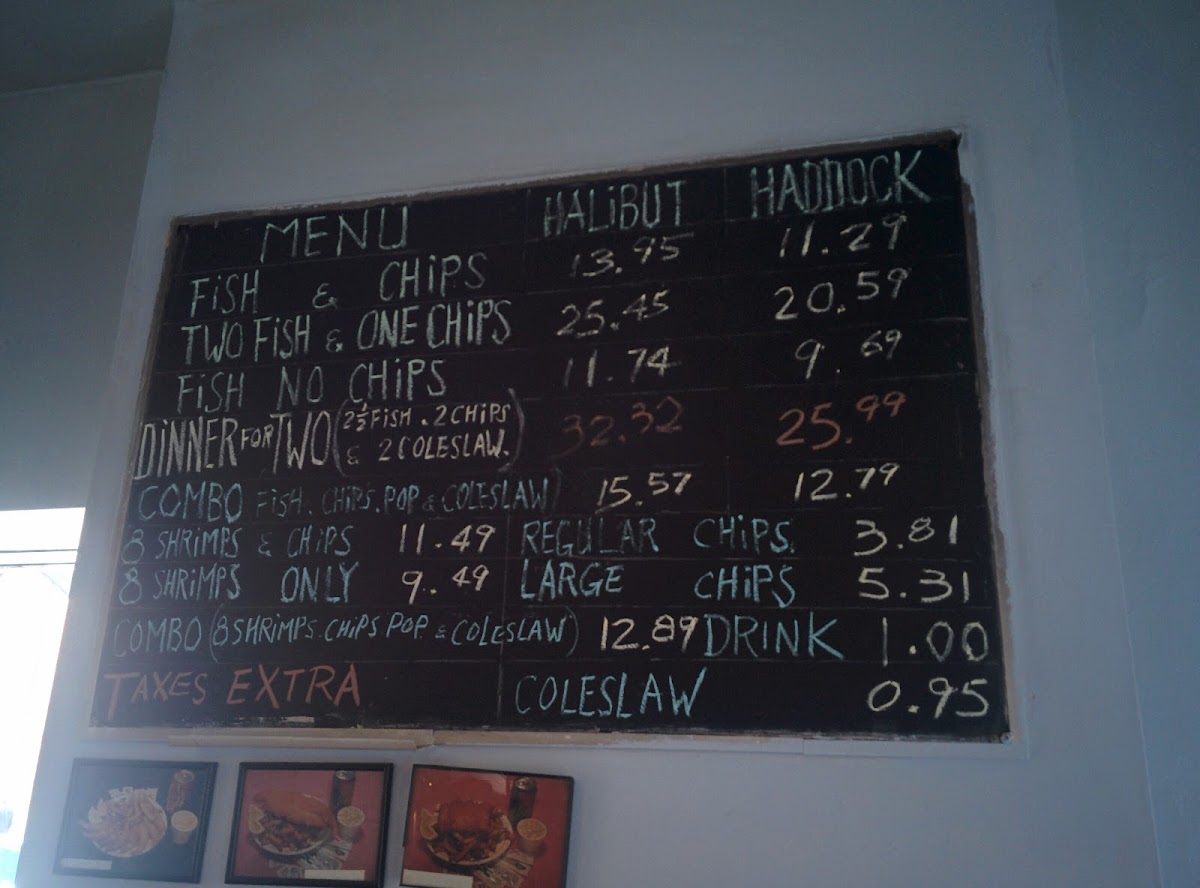 MENU HALIBUT HADDOCK
FiSH & CHiPS 13.95 11.29
TWO FiSH & ONE CHiPS 25.45 20.59
FiSH NO CHiPS 11.74 9.69
DiNNER FOR TWO (2½ FiSH . 2 CHiPS & 2 COLESLAW.) 32.32 25.99
COMBO FiSH. CHiPS. POP & COLESLAW) 15.57 12.79
8 SHRiMPS & CHiPS 11.49 REGULAR CHiPS. 3.81
8 SHRiMPS ONLY 9.49 LARGE CHiPS 5.31
COMBO (8 SHRiMPS. CHiPS POP & COLESLAW) 12.89 DRiNK 1.00
TAXES EXTRA COLESLAW 0.95